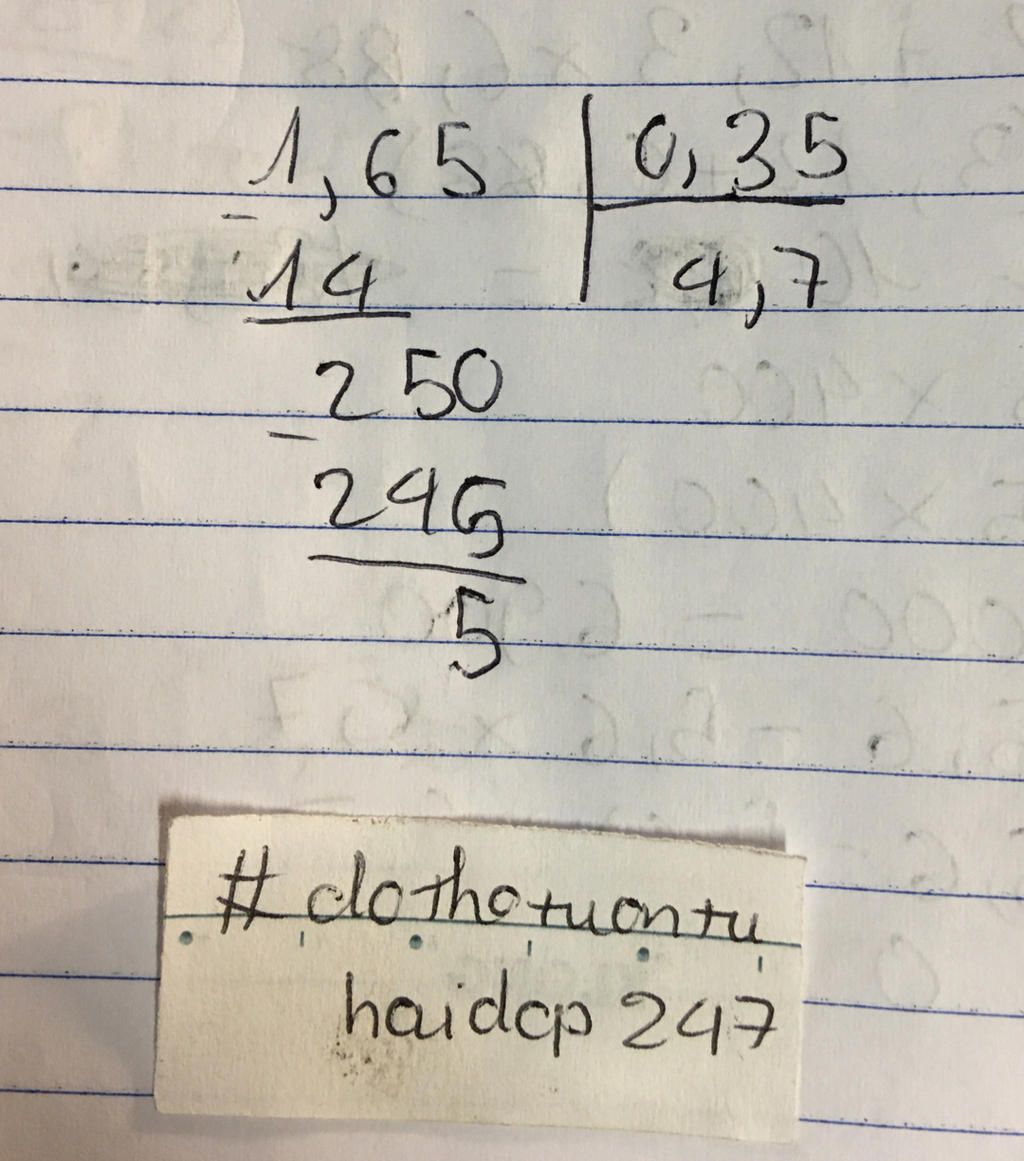 1,65 | 0,35
- 14 | 4,7
250
- 245
5
# dothotuontu
haidcp 247